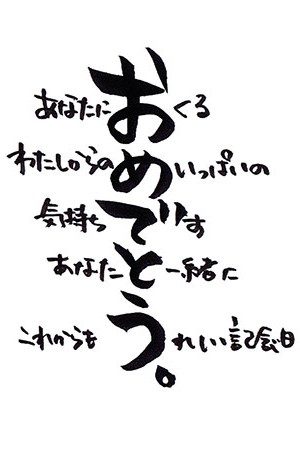 あなたにおくる
わたしからのめいっぱいの
気持ちです
あなたと一緒に
これからもうれしい記念日。